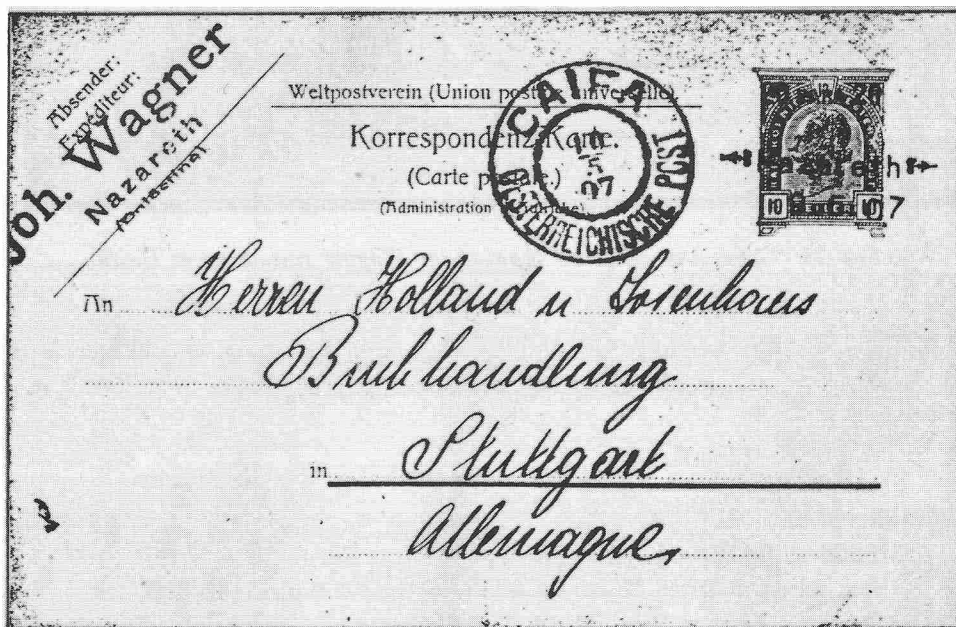 Absender:
Expéditeur:
Joh. Wagner
Nazareth
(Palästina)
Weltpostverein (Union postale universelle)
Korrespondenz-Karte.
(Carte postale.)
CAIFA
5
07
OESTERREICHISCHE POST
10 10
An Herren Holland u Josenhans
Buchhandlung
in Stuttgart
Allemagne